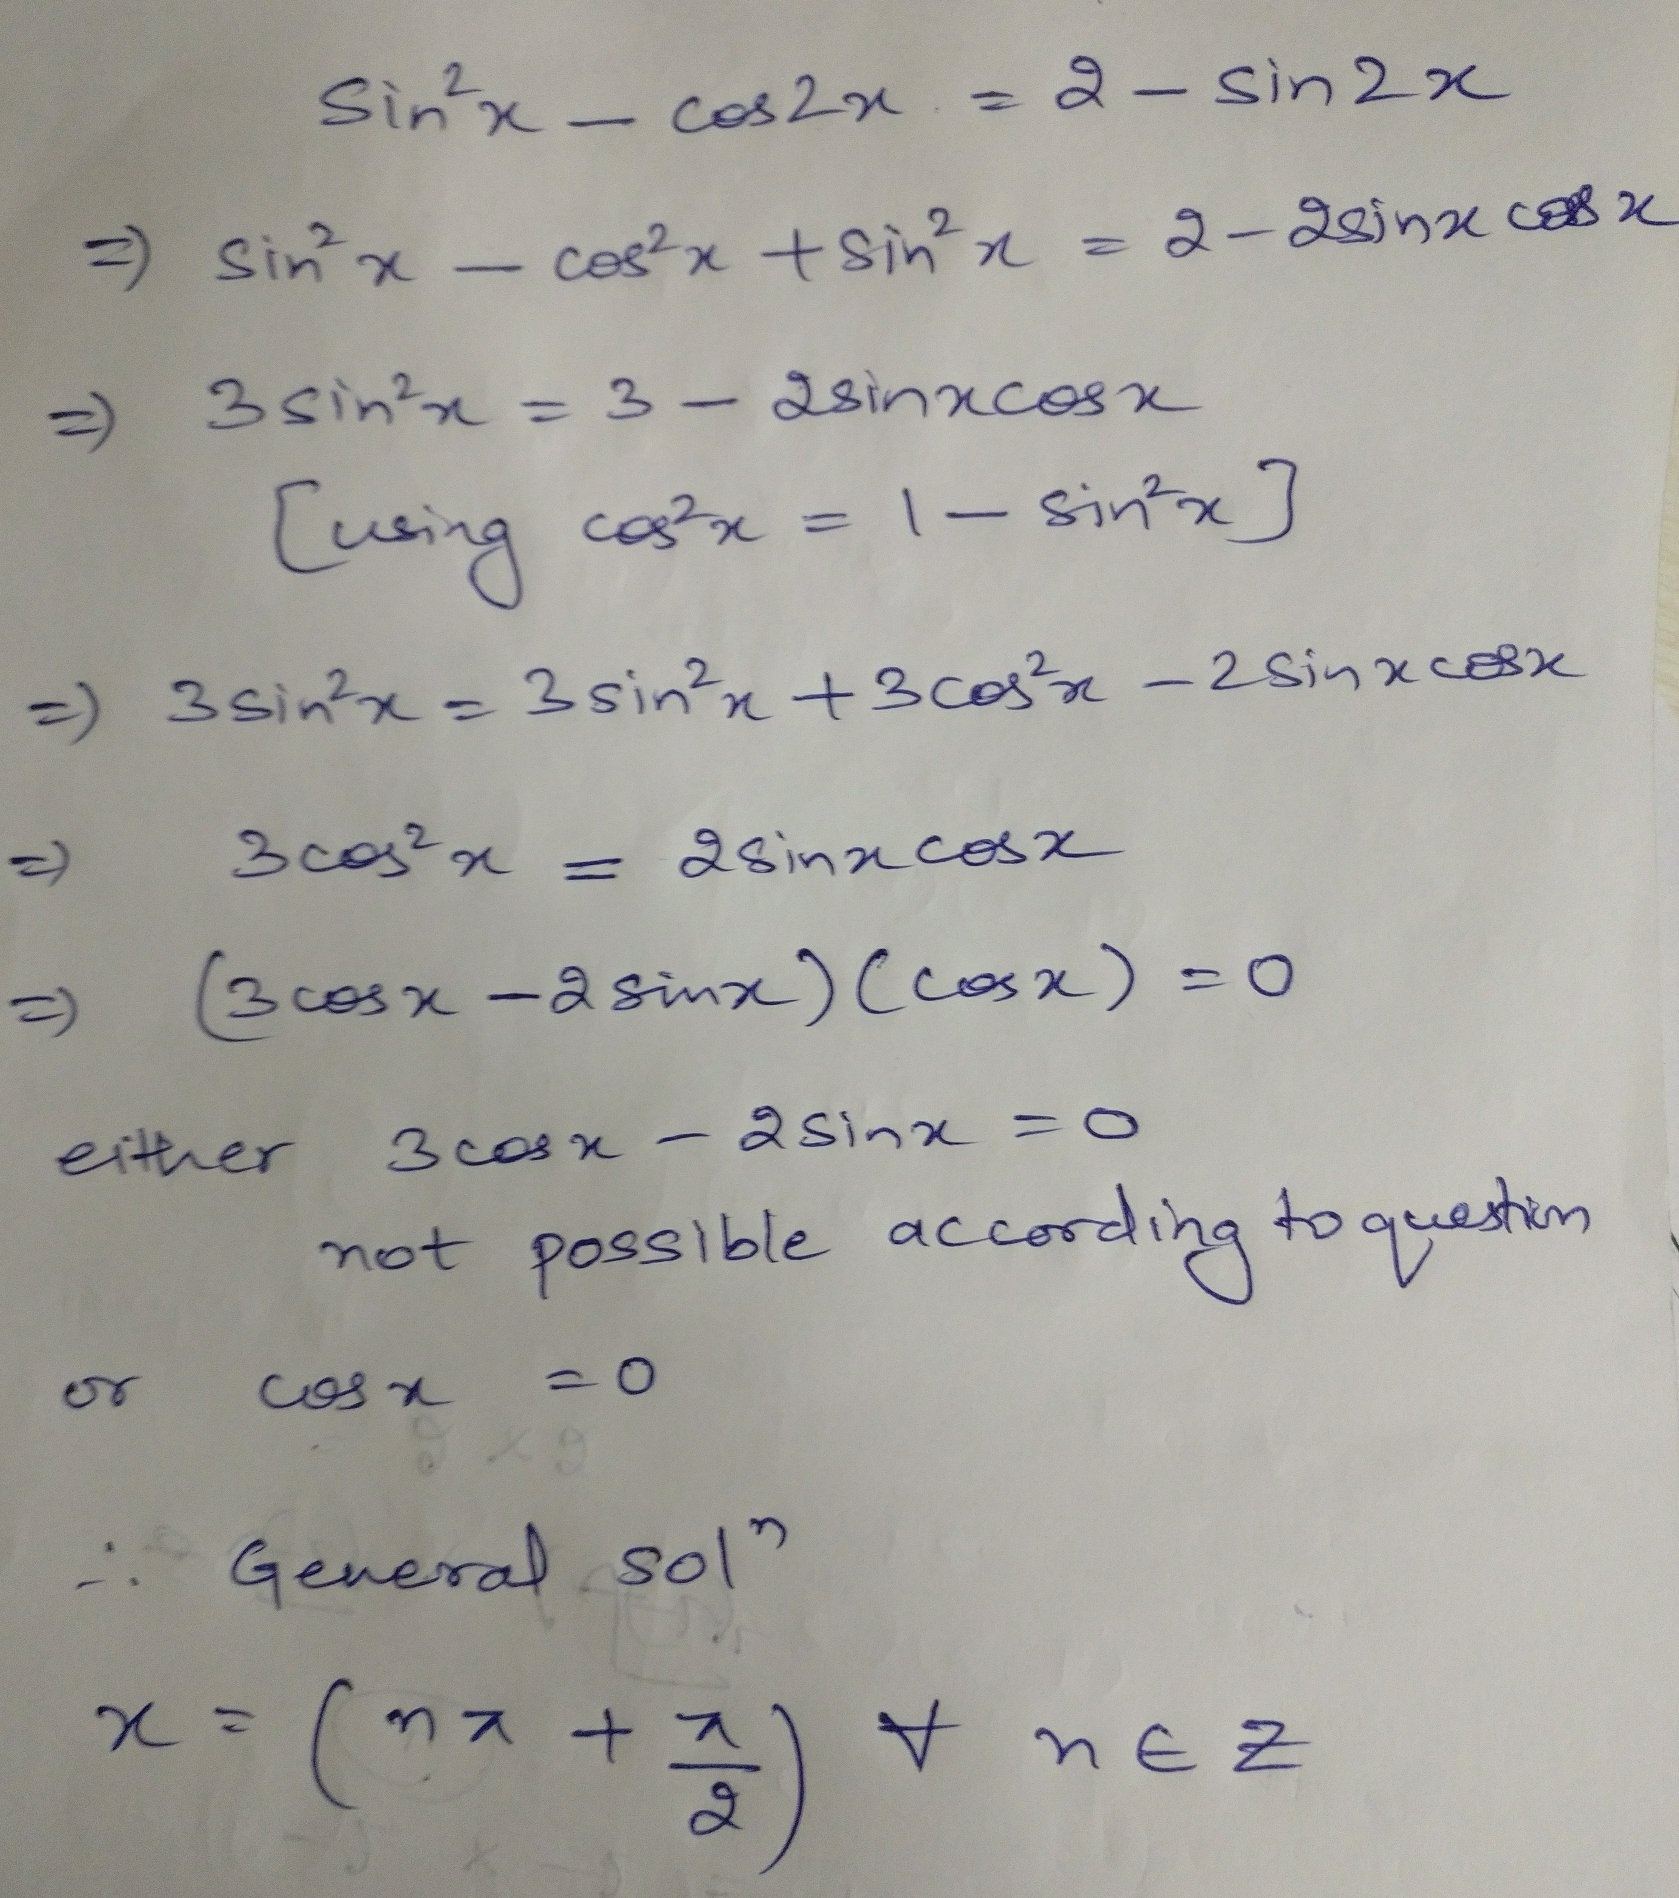 Sin²x – cos2x = 2 – sin2x
⇒ sin²x – cos²x + sin²x = 2 – 2sinx cosx
⇒ 3sin²x = 3 – 2sinxcosx
[using cos²x = 1 – sin²x]
⇒ 3sin²x = 3sin²x + 3cos²x – 2sinxcosx
⇒ 3cos²x = 2sinxcosx
⇒ (3cosx – 2sinx)(cosx) = 0
either 3cosx – 2sinx = 0
not possible according to question
or cosx = 0
∴ General solⁿ
x = (nπ + π/2) ∀ n ∈ Z